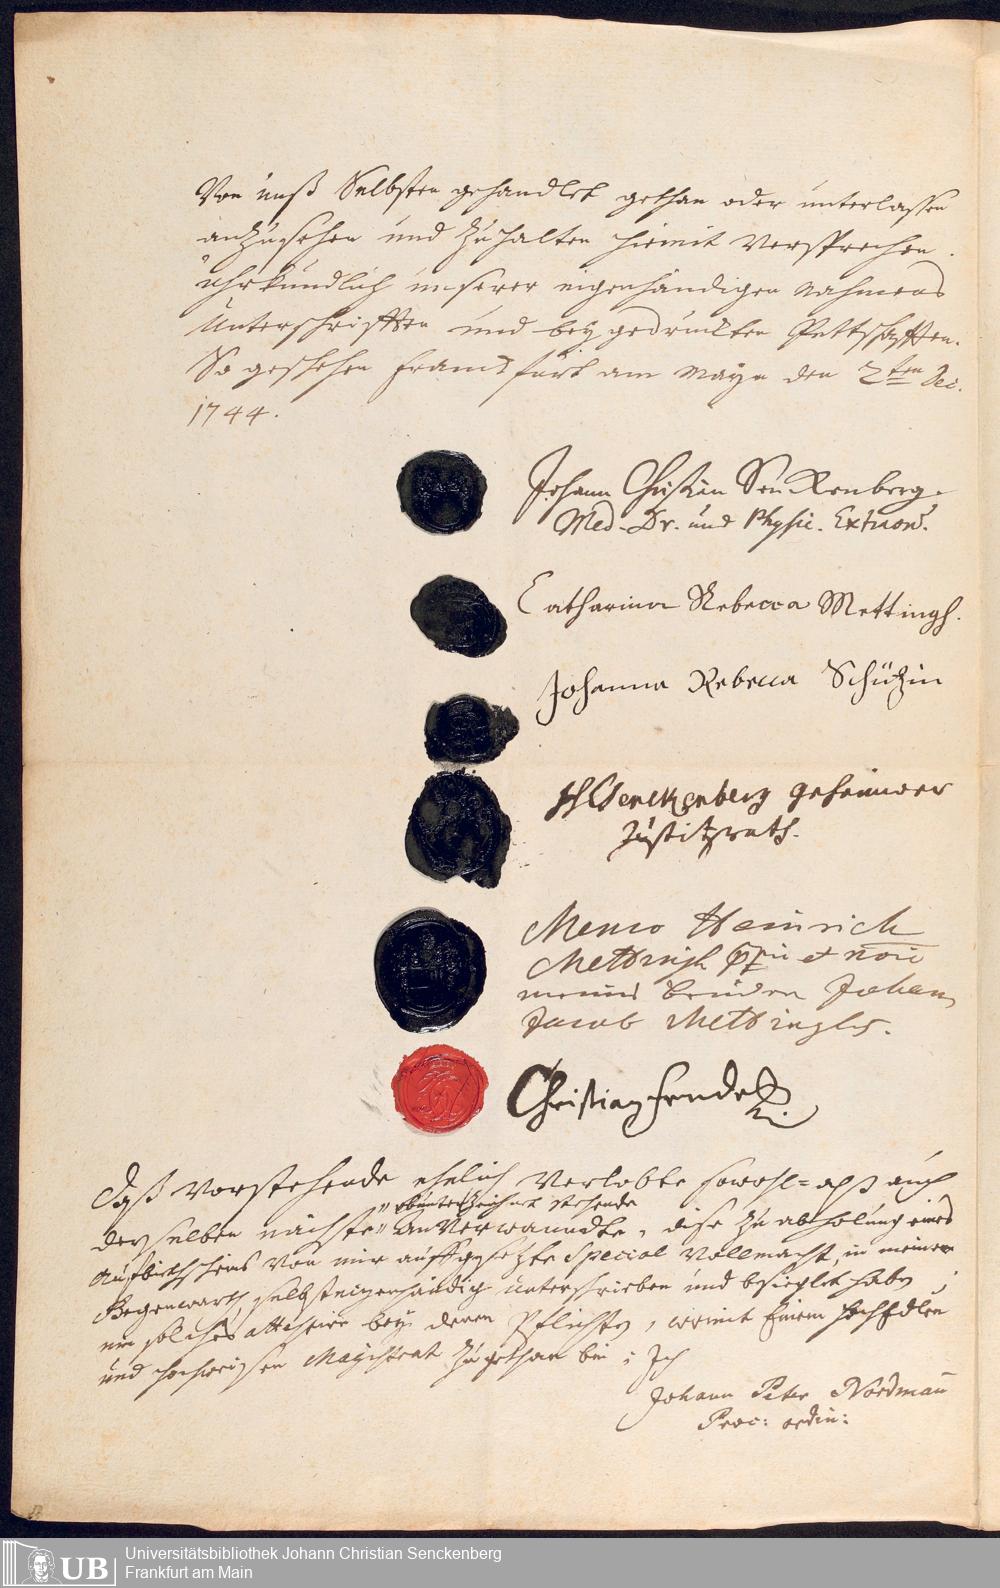 Von unß Selbsten gehandlet gethan oder unterlassen
anzusehen und zu halten hiemit Versprechen.
Uhrkundlich unserer eigenhändigen nahmens
Unterschrifften und bey gedruckten Pettschafften.
So geschehen Franckfurt am Mayn den 2ten Dec.
1744.
Johann Christian Senckenberg.
Med. Dr. und Physic. Extraord.
Catharina Rebecca Mettingh.
Johanna Rebecca Schützin
HCSenckenberg geheimder
Justitzrath.
Menco Heinrich
Mettingh et noie
meines bruders Johan
Jacob Mettinghs.
Christian Fende
Daß Vorstehende ehelich Verlobte sowohl= alß auch
derselben nächste Anverwanndte, diße zu abholung eines
"obunterzeichnet stehende
Aufbiethscheins Von mir auffgesetzte Special Vollmacht, in meiner
Gegenwarth, selbsteigenhändig unterschrieben und besieglet haben,
ein solches attestire bey denen Pflichten, womit Einem HochEdlen
und Hochweißen Magistrat zugethan bin; Ich
Johann Peter Nordmañ
Proc: ordin:
UB
Universitätsbibliothek Johann Christian Senckenberg
Frankfurt am Main